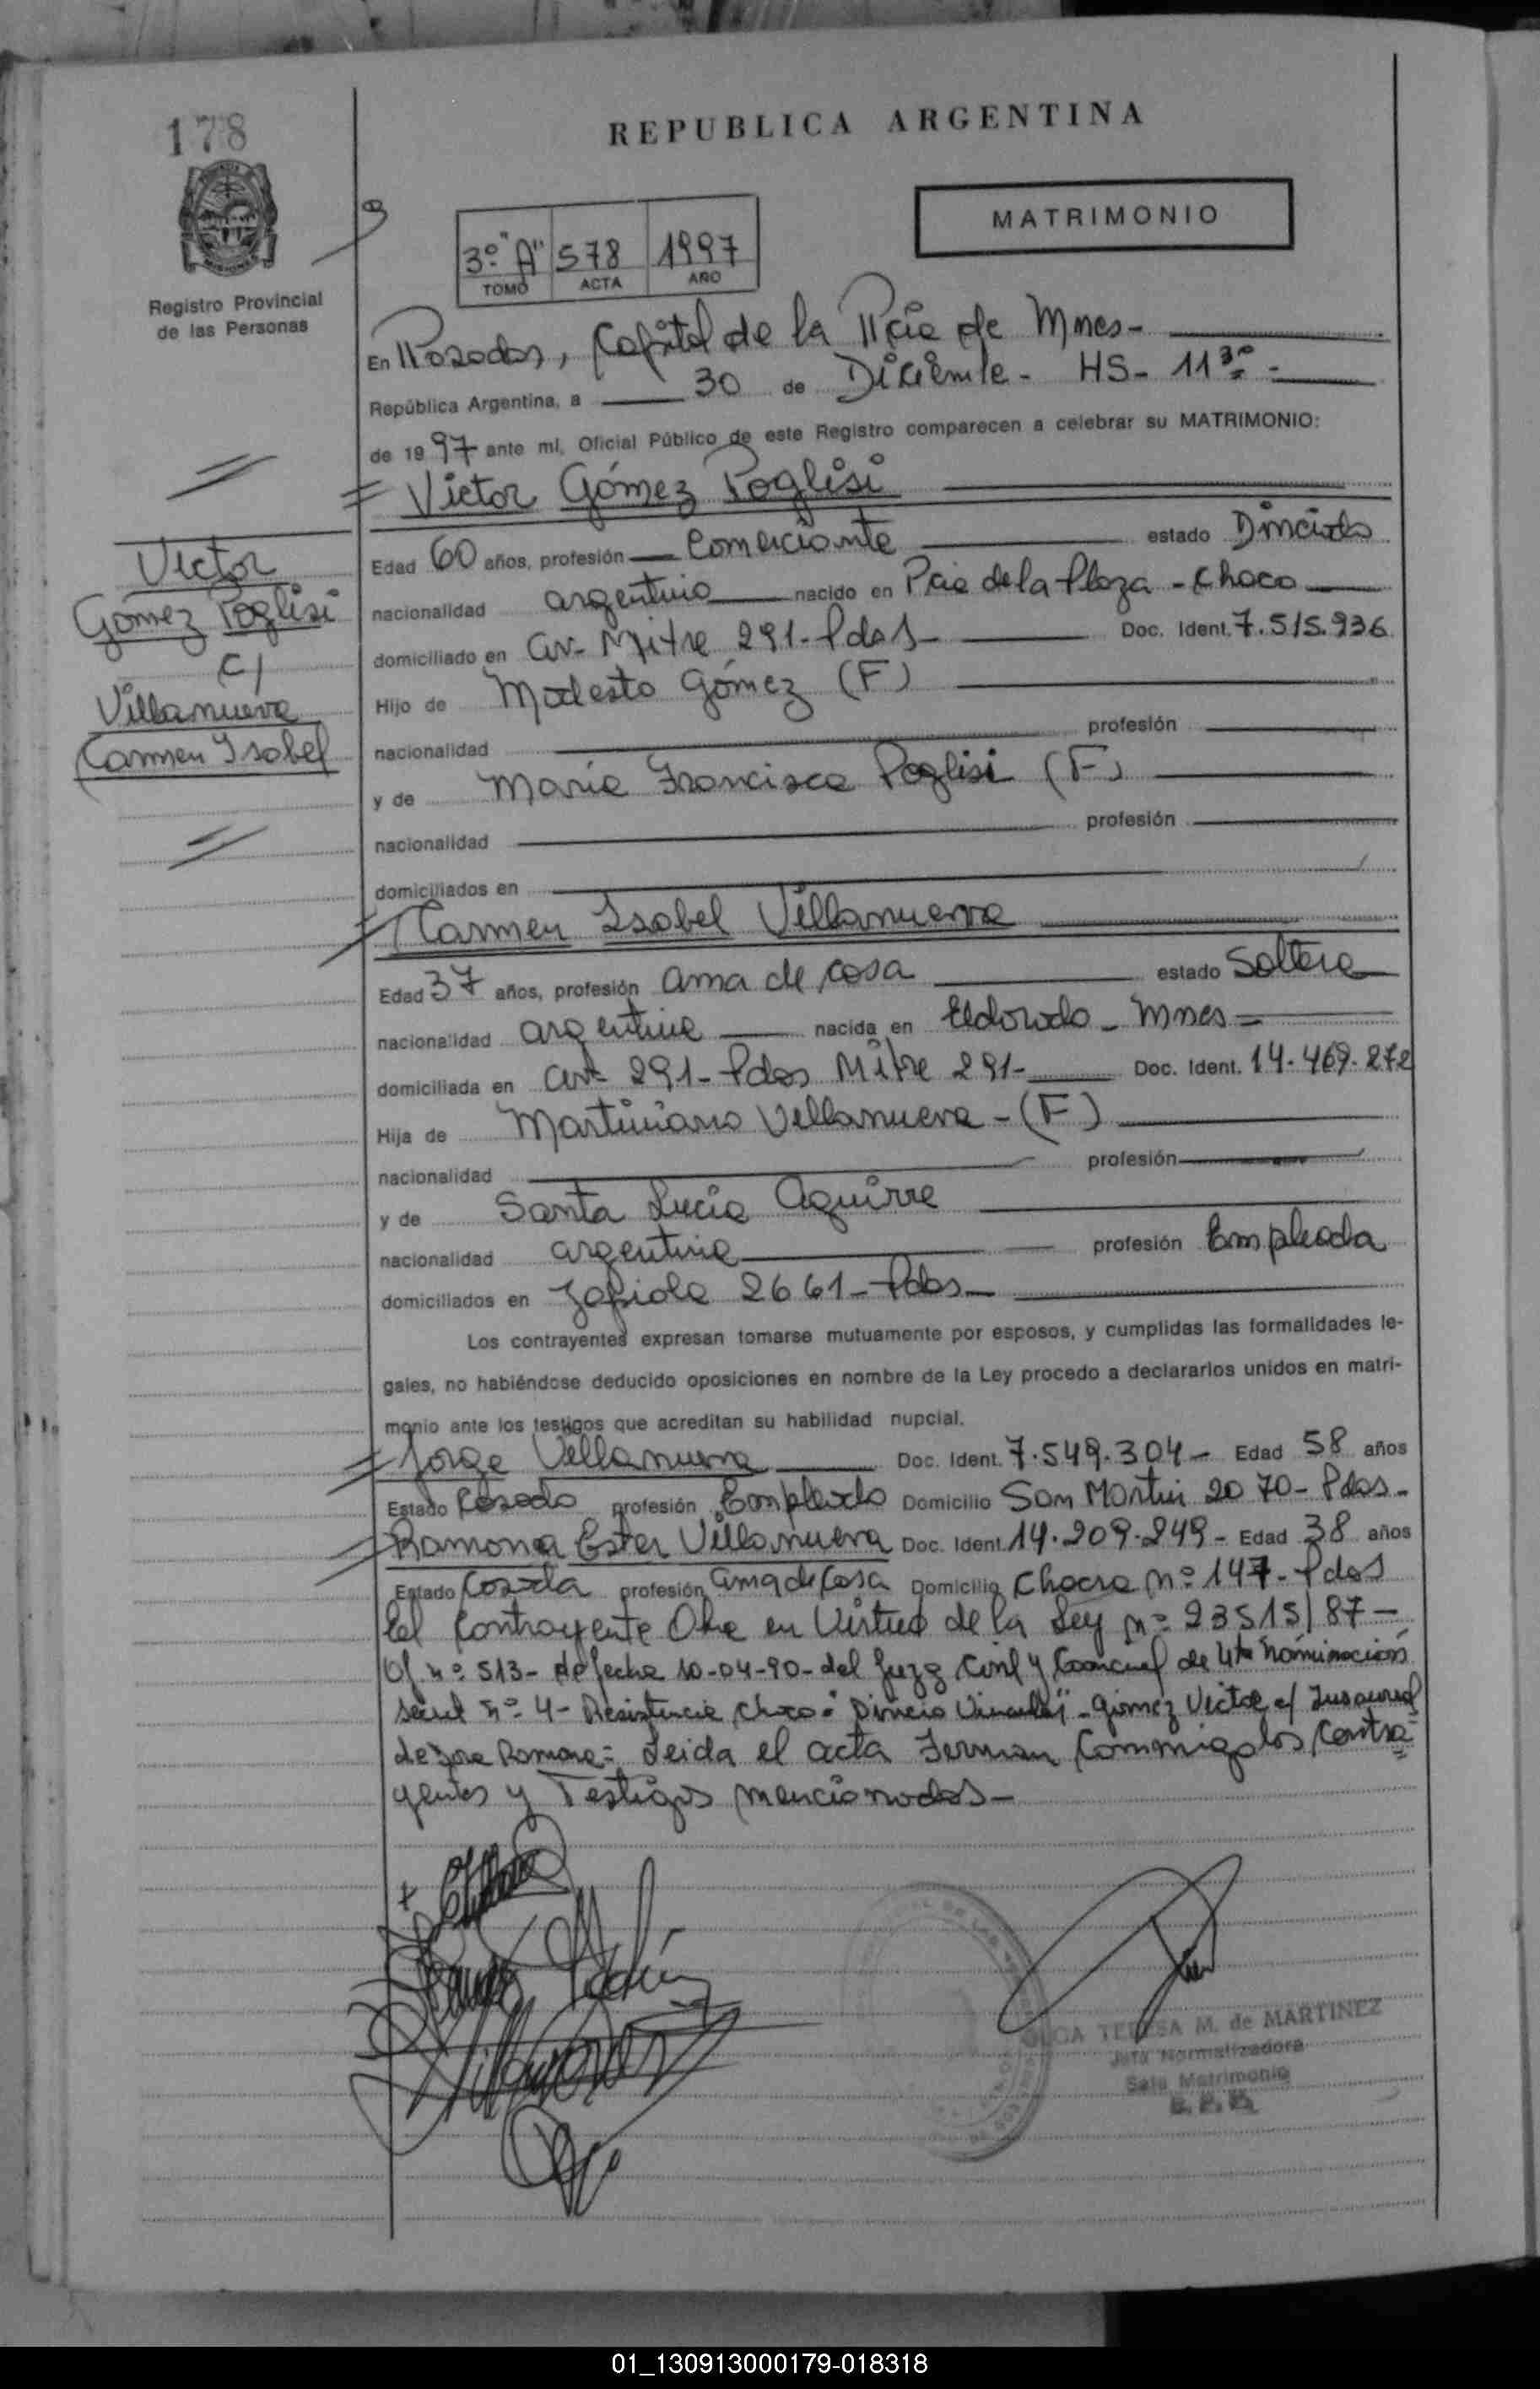 178
REPUBLICA ARGENTINA
MATRIMONIO
3º "A" 578 1997
TOMO ACTA AÑO
Registro Provincial
de las Personas
En Posadas, Capital de la Pcia de Mnes-
República Argentina, a 30 de Diciembre - HS- 11 30 -
de 1997 ante mí, Oficial Público de este Registro comparecen a celebrar su MATRIMONIO:
Victor Gómez Poglisi
Victor
Gómez Poglisi
C/
Villanueva
Carmen Isabel
Edad 60 años, profesión Comerciante estado Divorciado
nacionalidad argentino nacido en Pcia de la Plaza - Chaco
domiciliado en Av- Mitre 291- Pdas- Doc. Ident. 7.515.936
Hijo de Modesto Gómez (F)
nacionalidad profesión
y de María Francisca Poglisi (F)
nacionalidad profesión
domiciliados en
Carmen Isabel Villanueva
Edad 37 años, profesión ama de casa estado Soltera
nacionalidad argentina nacida en Eldorado - Mnes
domiciliada en 291- Pdas Mitre 291- Doc. Ident. 14.469.272
Hija de Martiniano Villanueva - (F)
nacionalidad profesión
y de Santa Lucia Aguirre
nacionalidad argentina profesión Empleada
domiciliados en Zapiola 2661- Pdas-
Los contrayentes expresan tomarse mutuamente por esposos, y cumplidas las formalidades le-
gales, no habiéndose deducido oposiciones en nombre de la Ley procedo a declararlos unidos en matri-
monio ante los testigos que acreditan su habilidad nupcial.
Jorge Villanueva Doc. Ident. 7.549.304- Edad 58 años
Estado Casado profesión Empleado Domicilio San Martin 2070- Pdas-
Ramona Ester Villanueva Doc. Ident. 14.209.249- Edad 38 años
Estado Casada profesión ama de casa Domicilio Chacra nº 147- Pdas
El Contrayente en Virtud de la Ley nº 23515/87-
Of nº 513- de fecha 10-04-90- del Juzg Civil y Comercial de 4ta nominación
Secret nº 4- Resistencia Chaco Gómez Victor c/
Ramona = Leida el acta Firman Conmigo los Contra=
yentes y Testigos mencionados-
OLGA TERESA M. de MARTINEZ
Jefa Normalizadora
Sala Matrimonio
01_130913000179-018318